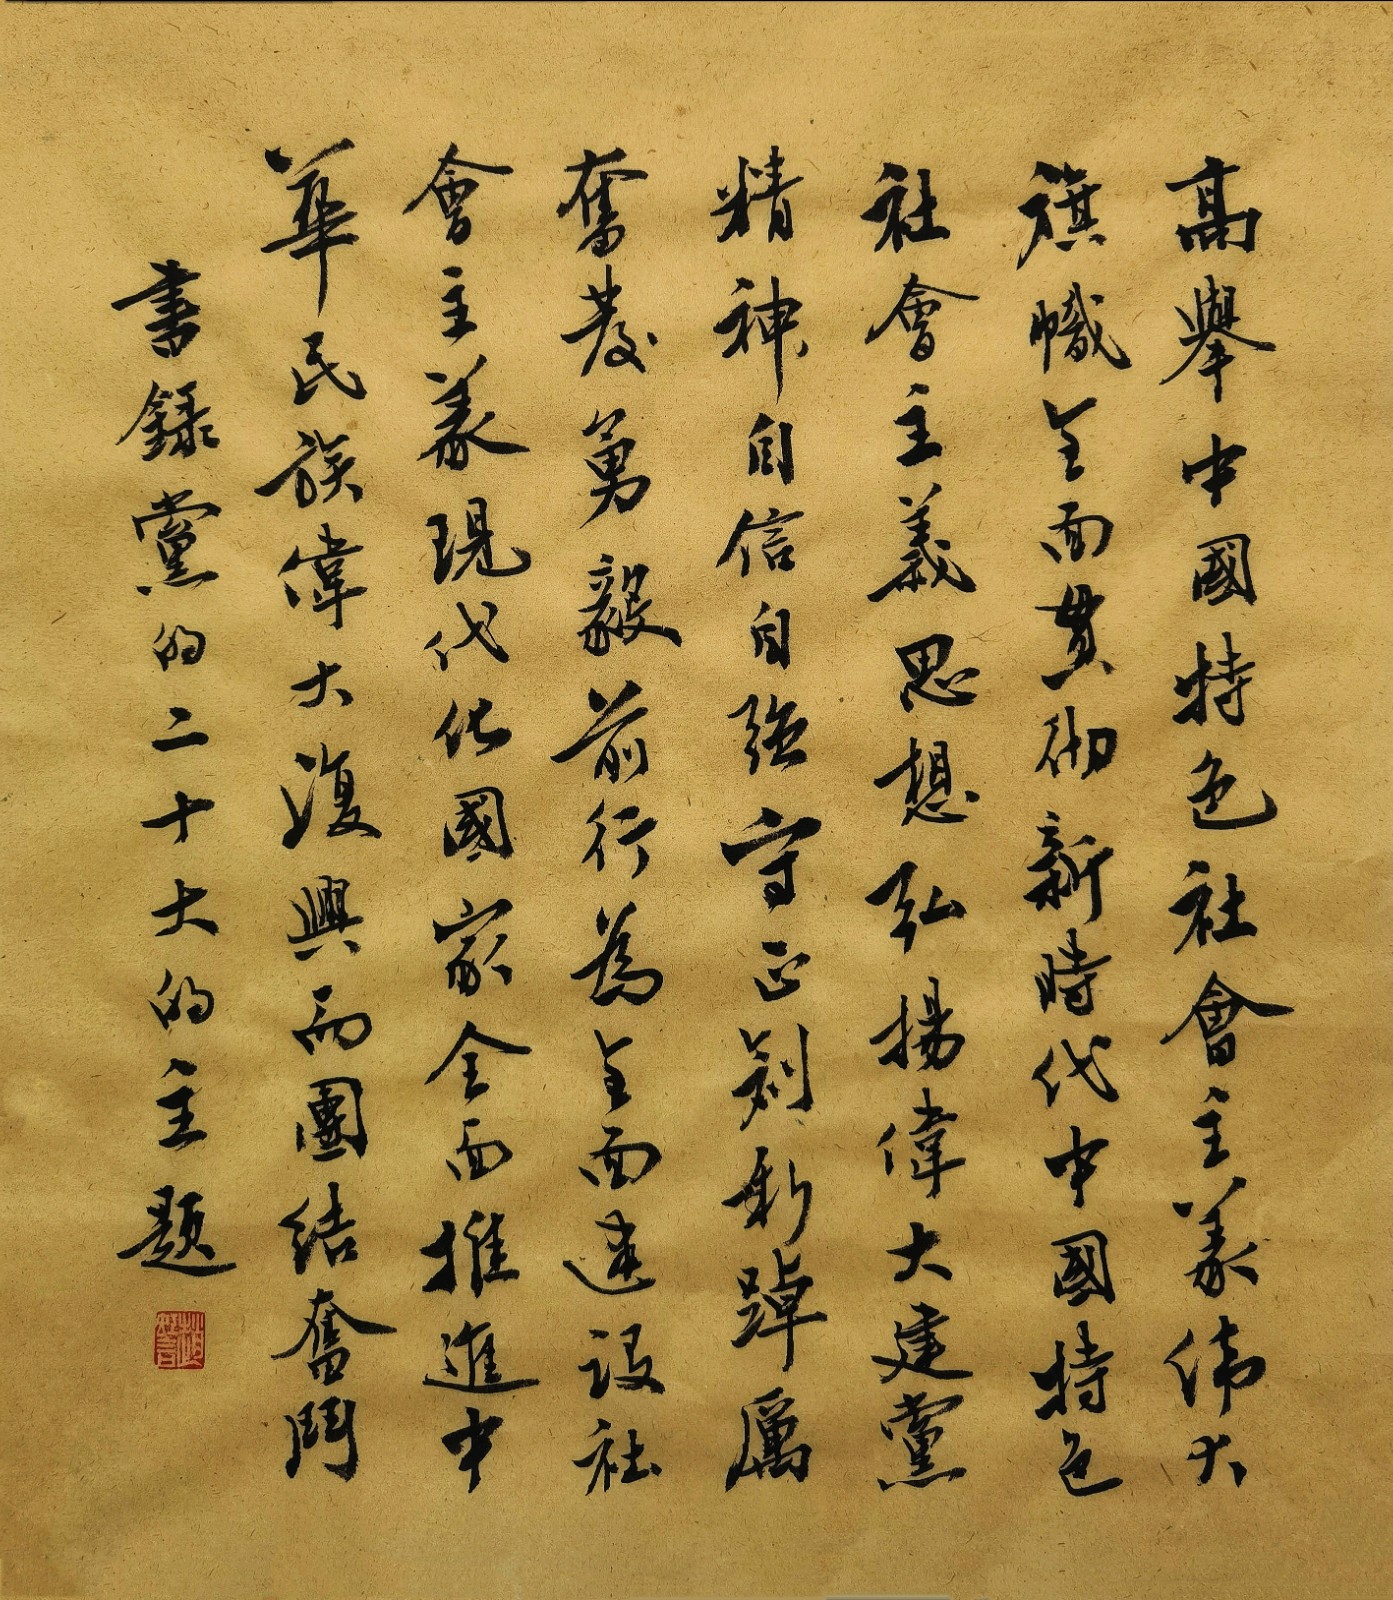 高舉中國特色社會主義伟大
旗幟全面貫彻新時代中國特色
社會主義思想弘揚偉大建黨
精神自信自强守正創新踔厲
奮發勇毅前行為全面建設社
會主義現代化國家全面推進中
華民族偉大復興而團結奮鬥
書録黨的二十大的主题